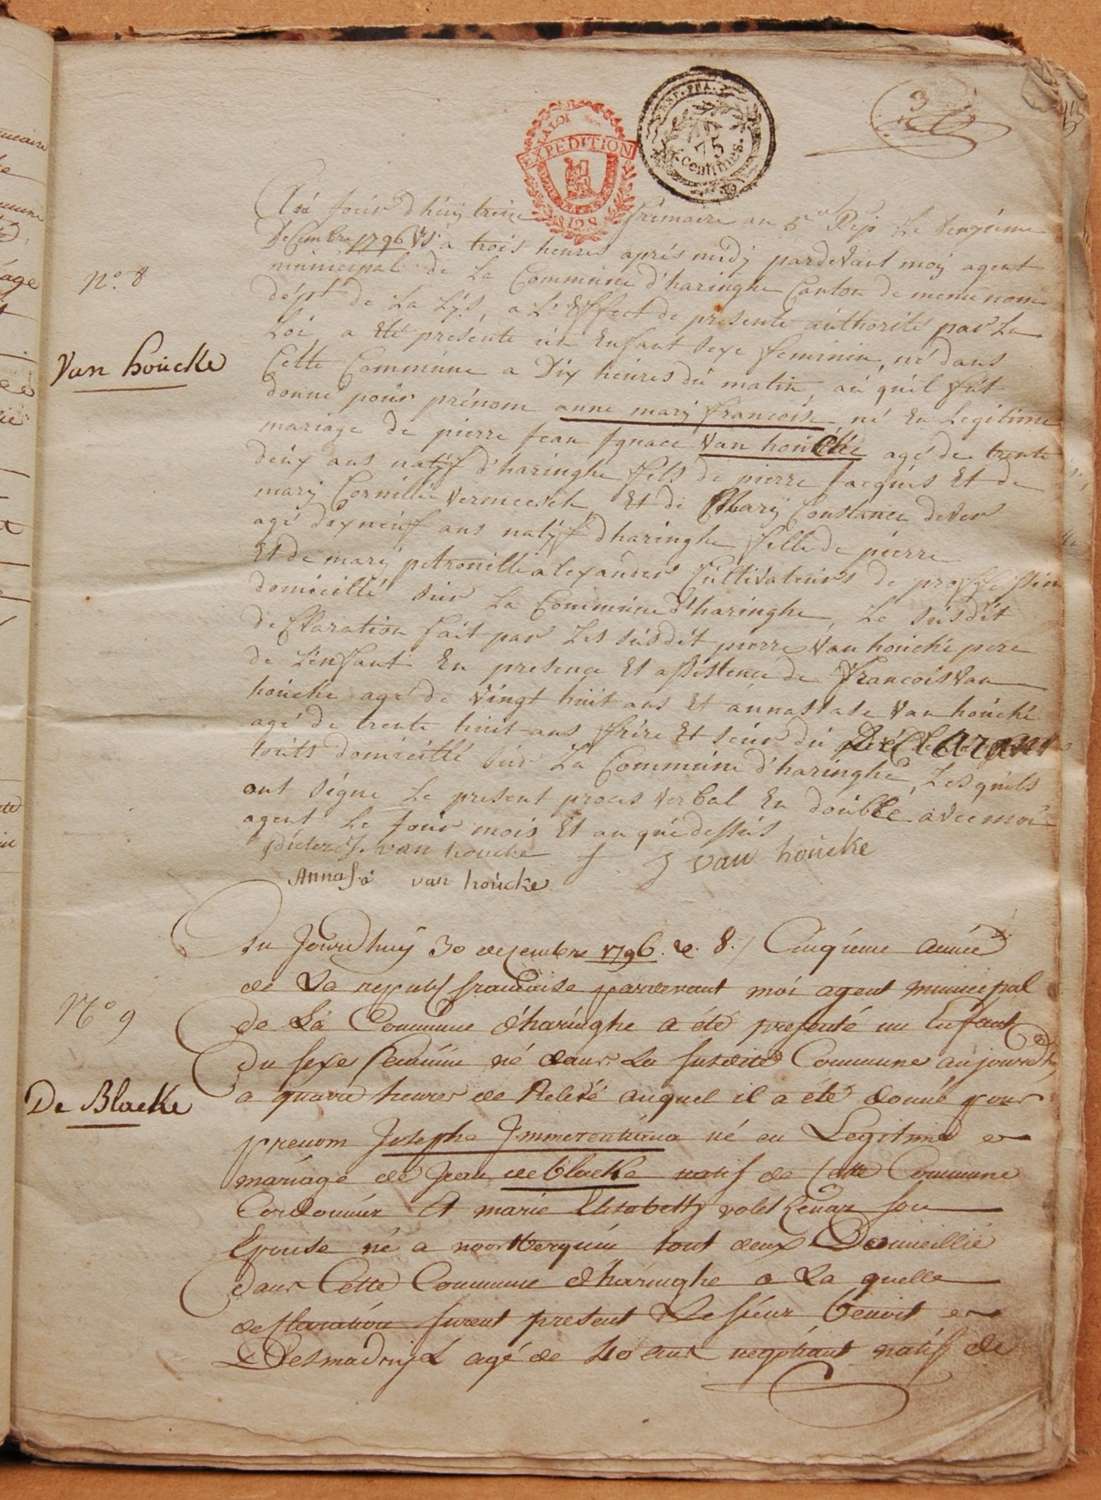 EXPÉDITION
REP. FRA.
75
centimes.
jour d'huy treize frimaire an 5e Rép. Le deuxieme
Desembre 1796 VS a trois heures après midy pardevant moy agent
municipal de La Commune d'haringhe Canton de meme nom
dépt de La Lijs, a L'Effect de presente authorité par La
Loi a eté presente un Enfant sexe feminin, né dans
Cette Commune a Dix heures du matin au quel fut
donné pour prénom anne marij francois, né En Legitime
N.o 8
Van houcke
mariage de pierre Jean Ignace Van houcke agé de trente
deux ans natijf d'haringhe fils de pierre Jacques Et de
marij Cornillie Vermeesch Et de Marij Constance
agé dixneuf ans natijf d'haringhe fille de pierre
Et de marij petronille alexander Cultivateurs de proffession
domicillié sur La Commune d'haringhe, Le susdit
declaration fait par Les susdit pierre Van houcke pere
de L'enfant En presence Et assistence de francois Van
houcke agé de Vingt huit ans Et annastasie Van houcke
agé de trente huit ans frère Et seur du Declarant
touts domicillié sur La Commune d'haringhe, Lesquels
ont signé Le present proces Verbal En double avec moi
agent Le jour mois Et an que dessus
van houcke f J van houcke
van houcke
Du Jourdhuij 30 decembre 1796. v. s. / Cinqieme année
de La republ francaise pardevant moi agent municipal
N.o 9
de La Commune d'haringhe a été presenté un Enfant
du sexe feminin né dans La susdite Commune aujourdh
De Blacke
a quatre heures de Relevé auquel il a été donné pour
prenom Josepha Immerentiana né en Legitime
mariage de Jean de blacke natif de Cette Commune
Cordonnier Et marie Elisabeth son
Epouse né a noordberquin tout deux Domicillié
dans Cette Commune d'haringhe a La quelle
declaration furent present Le sieur benoit
Desmadrijl agé de 40 ans negotiant natif de